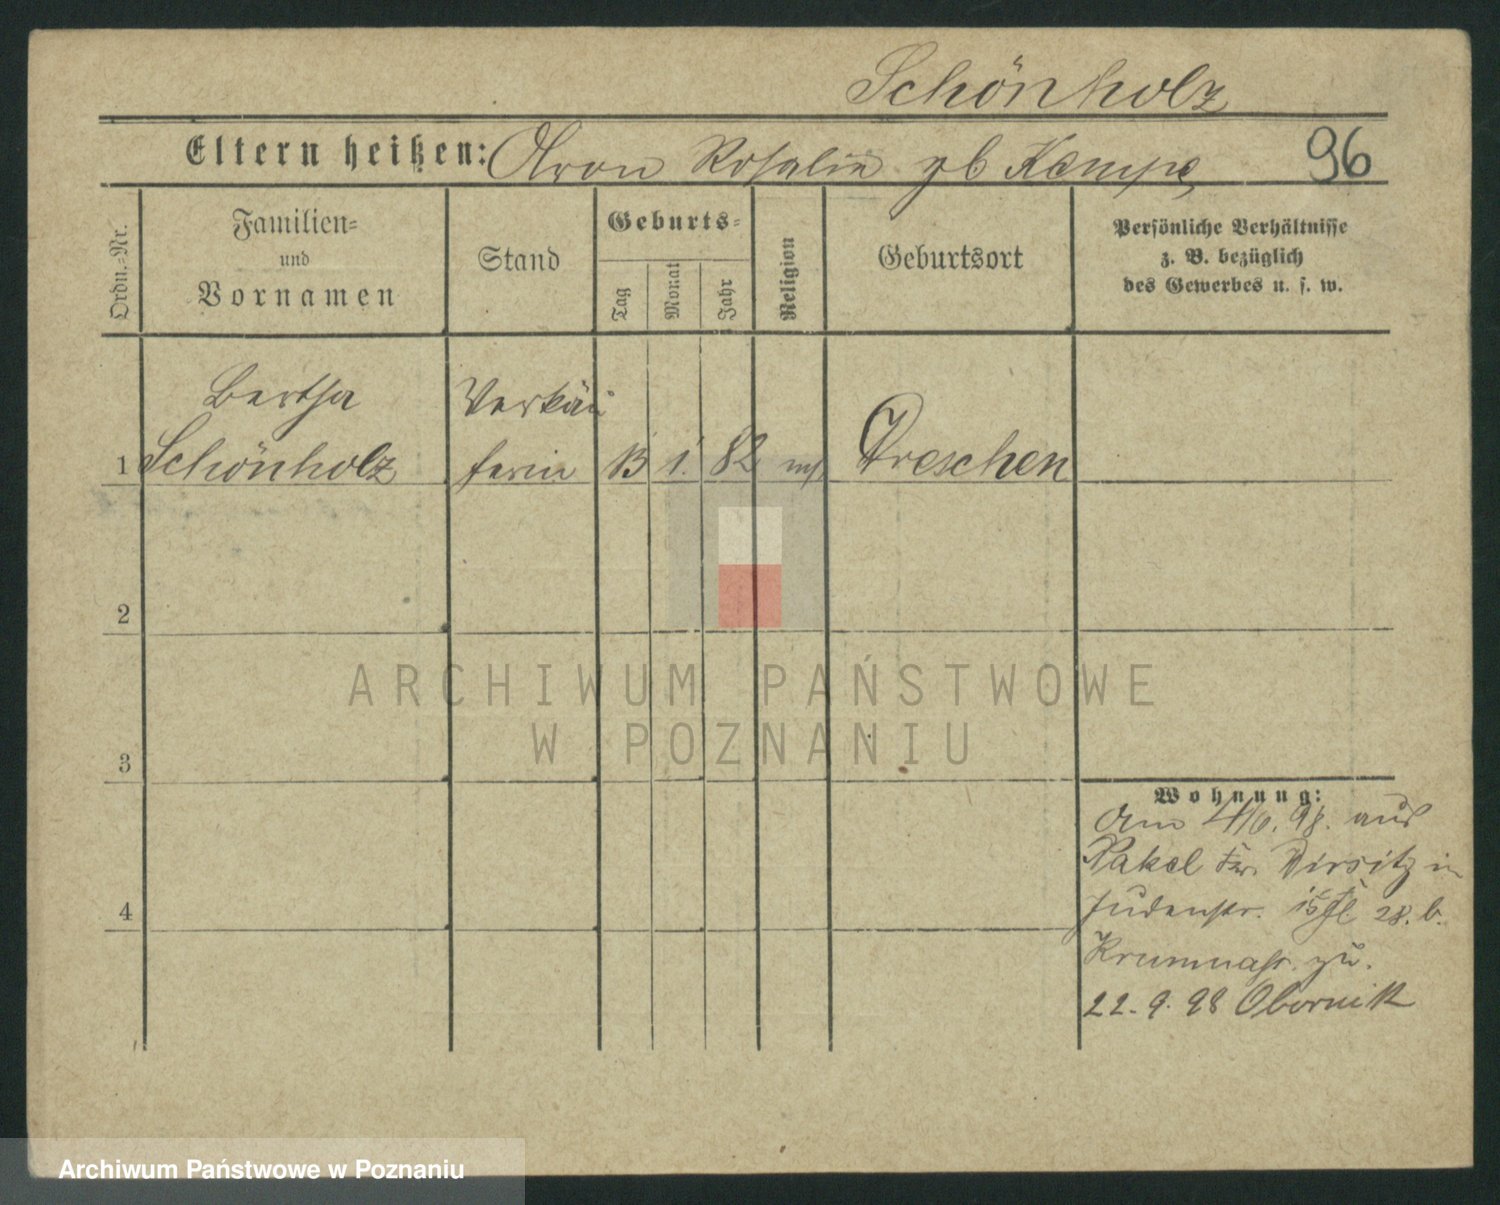 Schönholz
Eltern heißen: Aron Rosalie gb Kempe 96
Ordn.-Nr.
Familien-
und
Vornamen
Stand
Geburts-
Tag
Monat
Jahr
Religion
Geburtsort
Persönliche Verhältnisse
z. B. bezüglich
des Gewerbes u. s. w.
Bertha Verkäu
1 Schönholz ferin 13 1. 82 Dreschen
2
3
4
ARCHIWUM PAŃSTWOWE
W POZNANIU
Wohnung:
Am 4/6. 98. aus
Nakel Wirsitz in
Judenstr. 28. b.
zu.
22. 9. 98 Obornik
Archiwum Państwowe w Poznaniu